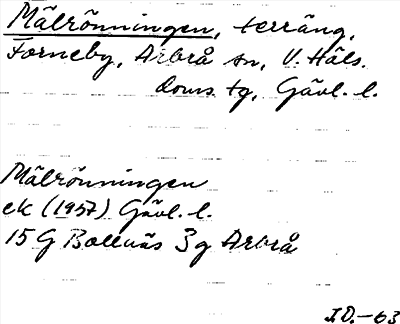 Mälrönningen, terräng,
Forneby, Arbrå sn, V. Häls.
doms. tg, Gävl. l.
Mälrönningen
ek (1957) Gävl. l.
15 G Bollnäs 3g Arbrå
I.D.-63